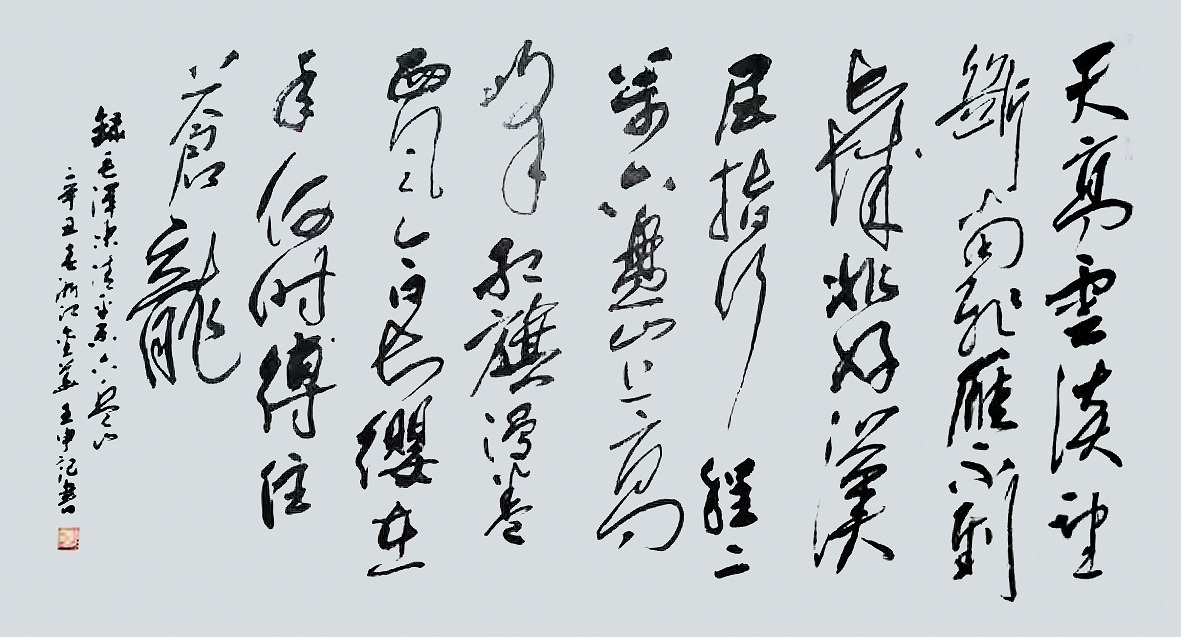 天高雲淡望
斷南飛雁不到
長城非好漢
屈指行程二
萬六盤山上高
峰紅旗漫卷
西風今日長纓在
手何时縛住
蒼龍
錄毛澤東清平樂六盤山
辛丑春浙江金華王申記書